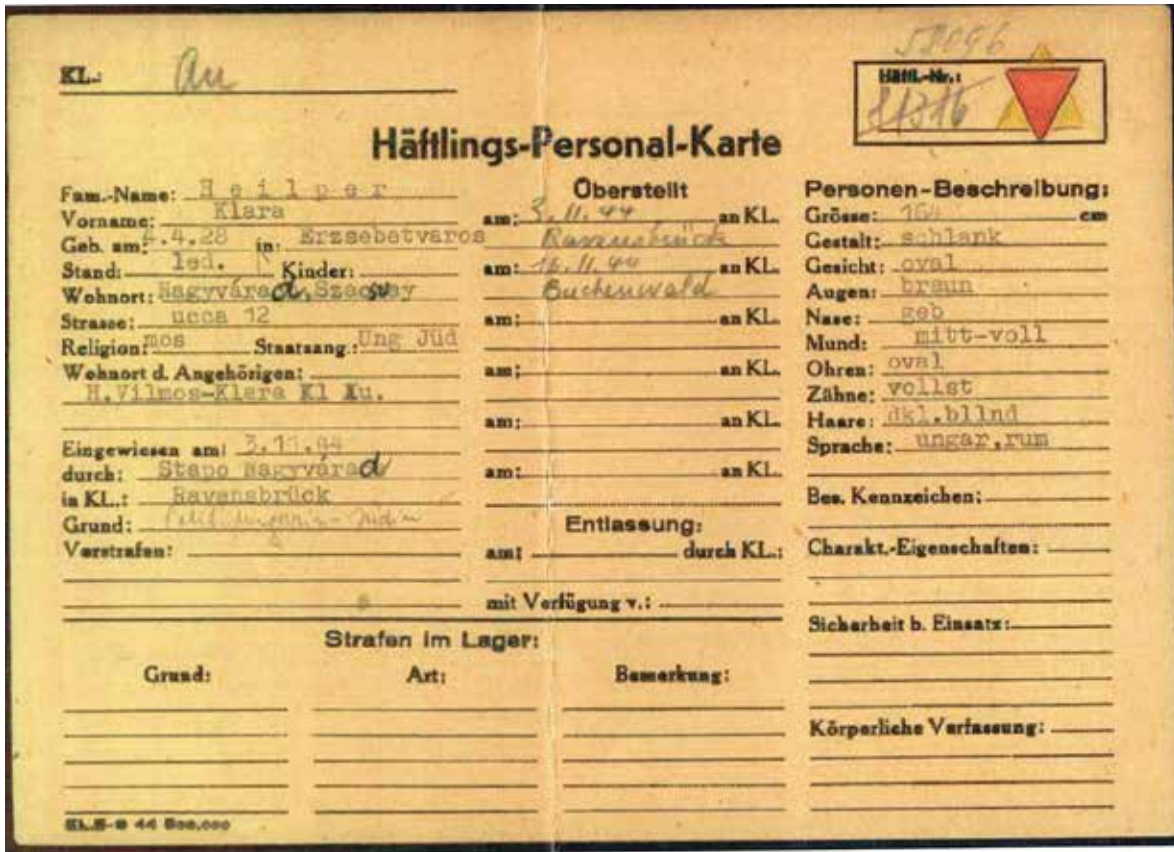 KL.: Au
Häftl.-Nr.:
Häftlings-Personal-Karte
Fam.-Name: Heilper
Vorname: Klara
Geb. am: 4.4.28 in: Erzsebetvaros
Stand: led. Kinder:
Wohnort: Nagyvárad,
Strasse: ucca 12
Religion: mos Staatsang.: Ung Jüd
Wohnort d. Angehörigen:
H.Vilmos-Klara Kl Au.
Eingewiesen am: 3.11.44
durch: Stapo Nagyvárad
in KL.: Ravensbrück
Grund:
Vorstrafen:
Überstellt
am: 3.11.44 an KL.
Ravensbrück
am: 16.11.44 an KL.
Buchenwald
am: an KL.
am: an KL.
am: an KL.
am: an KL.
Entlassung:
am: durch KL.:
mit Verfügung v.:
Personen-Beschreibung:
Grösse: 164 cm
Gestalt: schlank
Gesicht: oval
Augen: braun
Nase: geb
Mund: mitt-voll
Ohren: oval
Zähne: vollst
Haare: dkl.bllnd
Sprache: ungar,rum
Bes. Kennzeichen:
Charakt.-Eigenschaften:
Sicherheit b. Einsatz:
Körperliche Verfassung:
Strafen im Lager:
Grund: Art: Bemerkung: